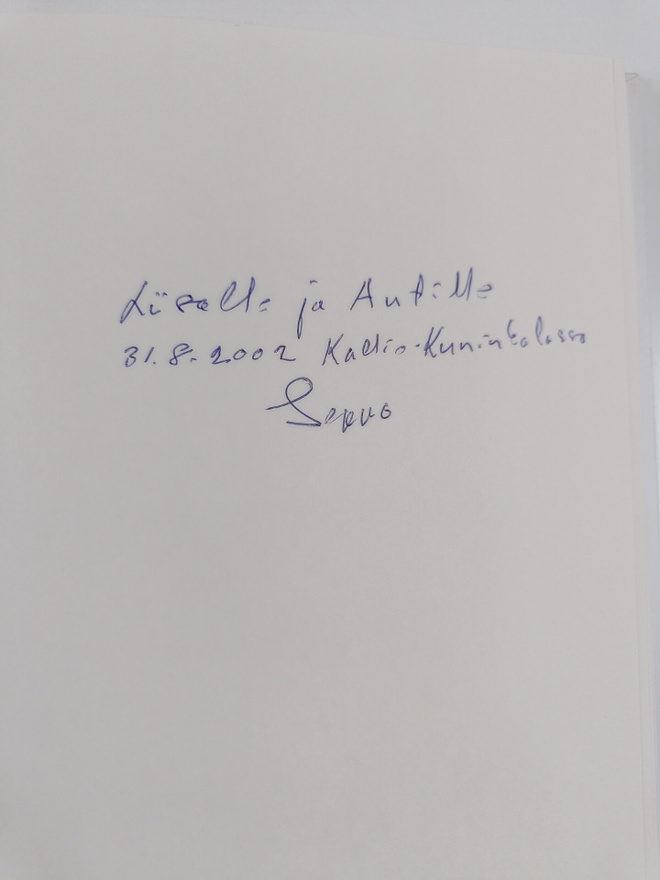 Liisalle ja Antille
31.8.2002 Kallio-Kuninkalassa
Seppo